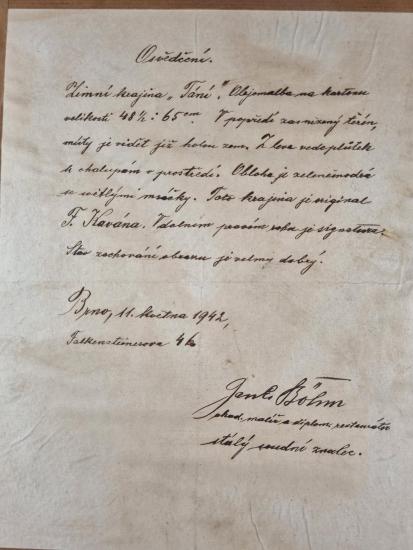 Osvědčení.
Zimní krajina „Tání". Olejomalba na kartonu
velikosti 48½ : 65 cm V popředí zasněžený terén,
místy je vidět již holou zem. Z leva vede plůtek
k chalupám v prostředí. Obloha je zelenomodrá
se světlými mráčky. Tato krajina je originál
F. Kavána. V dolním pravém rohu je signatura.
Stav zachování obrazu je velmy dobrý.
Brno, 11. května 1942,
Falkensteinerova 46
Böhm
akad. malíř a diplom. restaurátor
stálý soudní znalec.